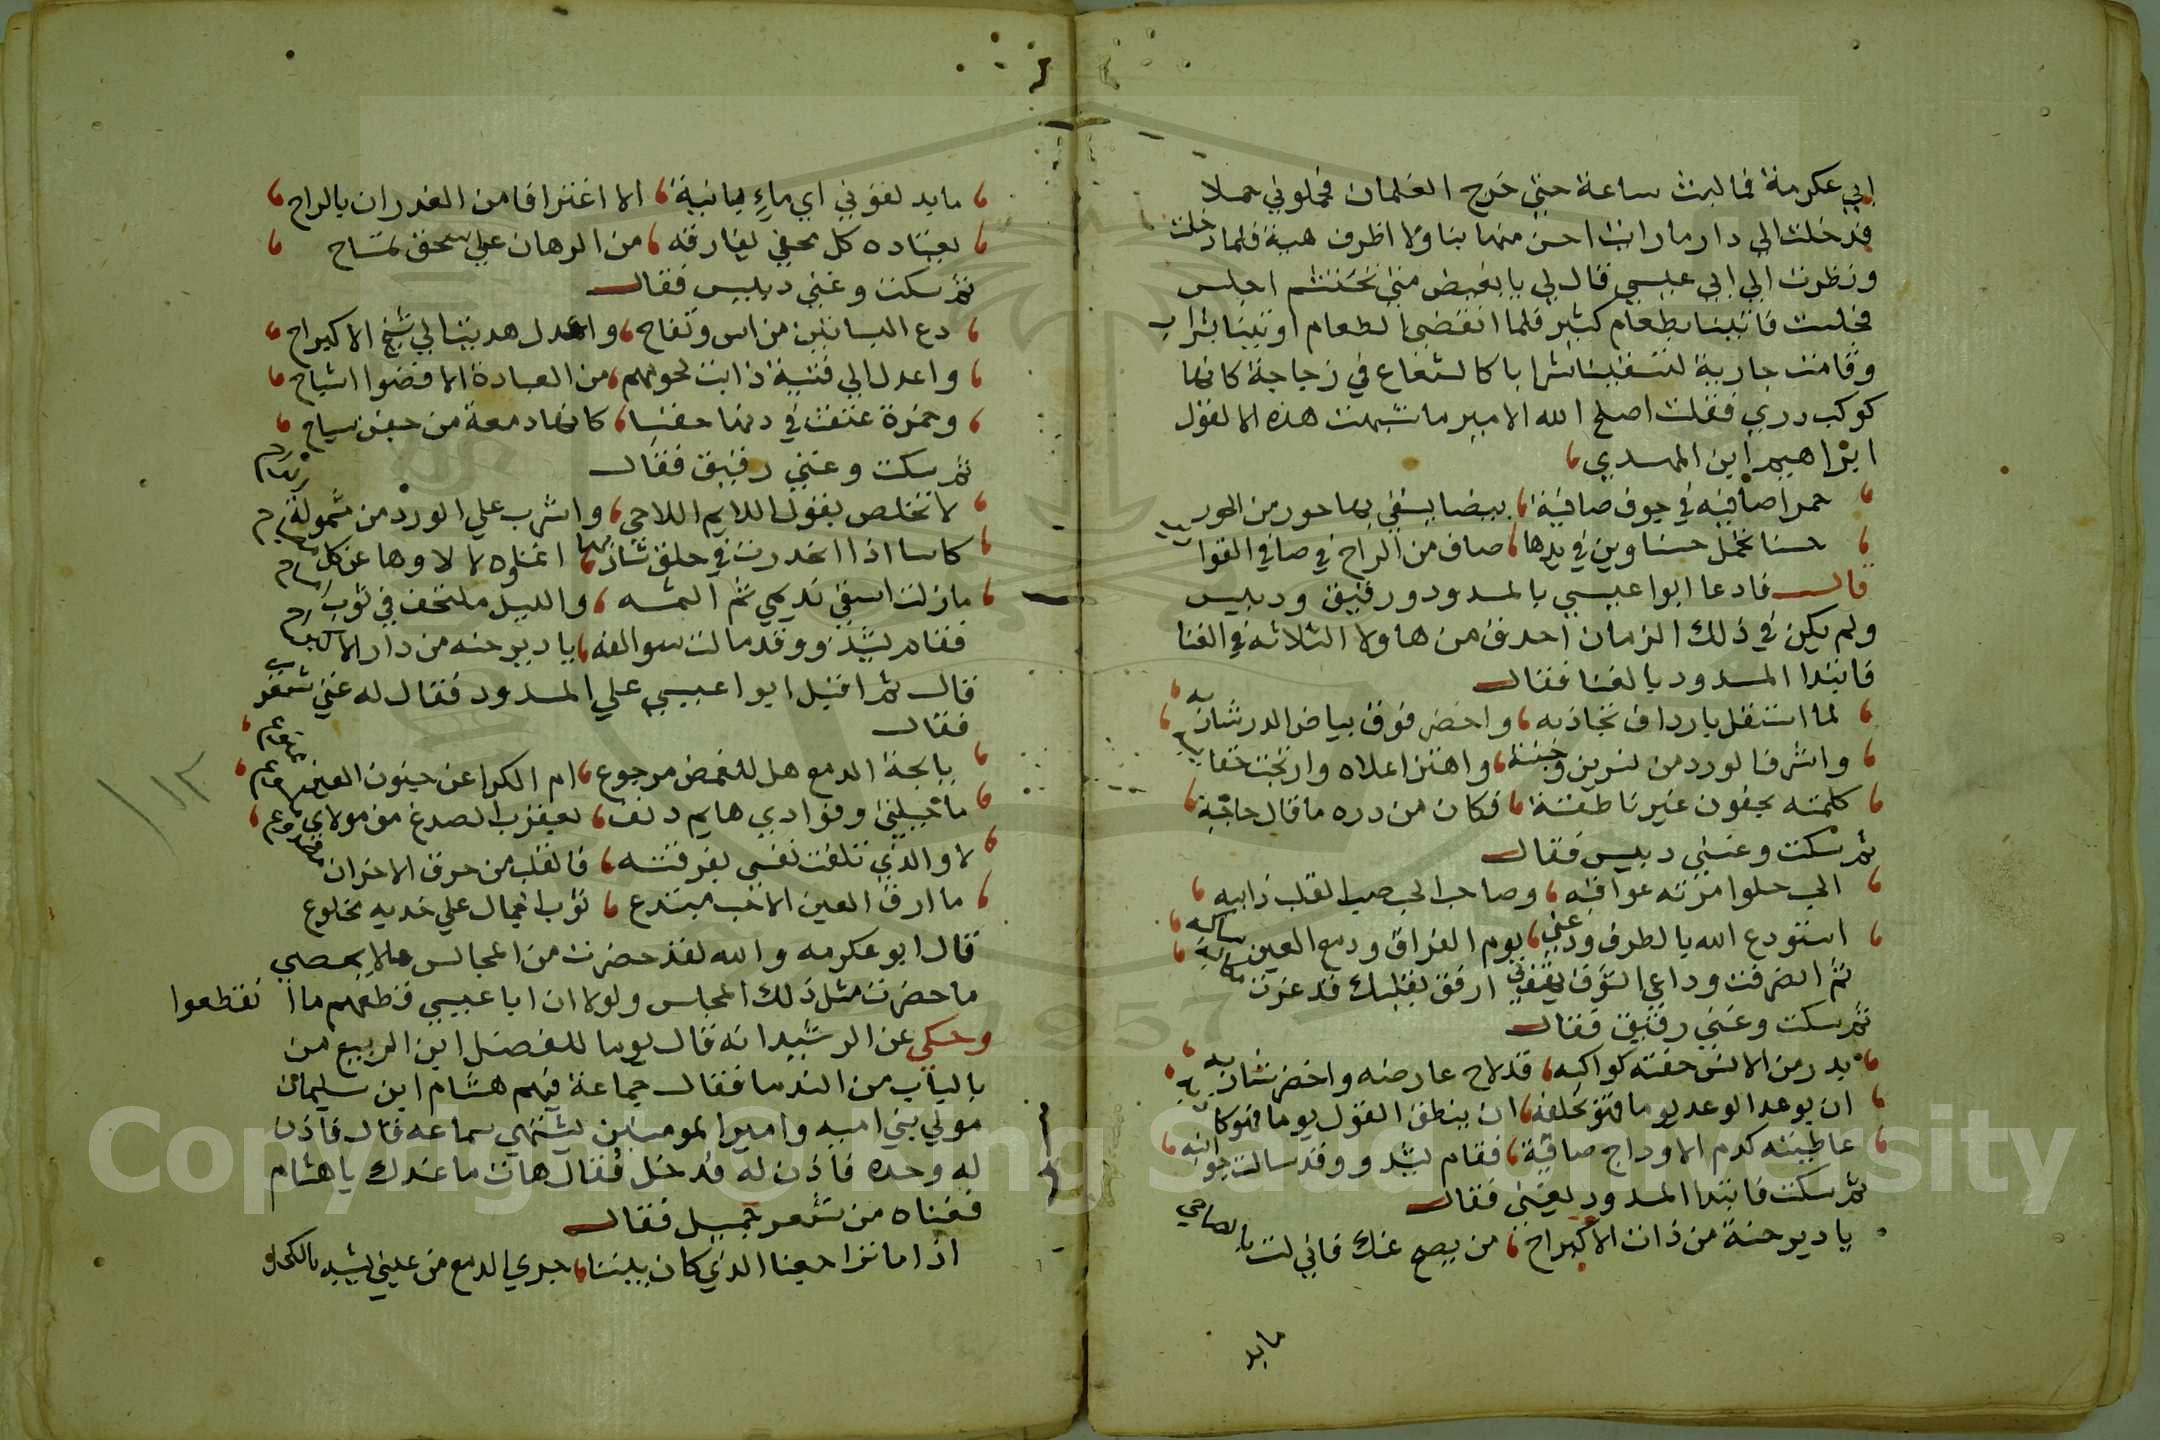 ابي عكرمة فما لبث ساعة حتى خرج الغلمان فحملوني حملا
فدخلت الى دار ما رايت احسن منها بنا ولا اظرف هيئة فلما دخلت
ونظرت الى ابي عيسي قال لي يا بغيض متى تحتشم اجلس
فجلست فاتينا بطعام كثير فلما انقضى الطعام اوتينا بشراب
وقامت جارية لتسقينا شرابا كالشعاع في زجاجة كانها
كوكب دري فقلت اصلح الله الامير ما شبهت هذه الا لقول
ابراهيم ابن المهدي
حمرا صافيه في جوف صافية بيضا يسقي بها حور من الحور
حسنا تحمل حسناوين في يدها صاف من الراح في صافي القوا
قال فادعا ابوا عيسي بالمسدود ورقيق ودبيس
ولم يكن في ذلك الزمان احدق من هاولا الثلاثه في الغنا
فابتدا المسدود بالغنا فقال
لما استقل بارداف تجاذبه واخضر فوق بياض الدر شاربه
واشرف الورد من نسرين وجنته واهتز اعلاه وارتجت حقا
كلمته بجفون غير ناطقة فكان من دره ما قال حاجبه
ثم سكت وغنى دبيس فقال
الحب حلوا مرته عواقبه وصاحب الحب صب القلب ذايبه
استودع الله بالطرف ودعني يوم الفراق ودمع العين ساكبه
ثم انصرفت وداعي الشوق يهتف بي ارفق بقلبك قد عزت
ثم سكت وغنى رقيق فقال
بدر من الانس حفته كواكبه قد لاح عارضه واخضر شاربه
ان يوعد الوعد يوما فهو مخلفه ان ينطق القول يوما فهو كا
عاطيته كدم الاوداج صافية فقام يشدو وقد مالت جوانبه
ثم سكت فابتدا المسدود يغنى فقال
يا دير حنة من ذات الاكيراح من يصح عنك فاني لست بالصاحي
مايد
مايد لغوني اي ماء بيانية الا اغترافا من الغدران بالراح
يعتاده كل محفي مفارقه من الرهان علي سحق تمساح
ثم سكت وغنى دبيس فقال
دع البساتين من اس وتفاح واعدل هديت الي شيخ الاكيراح
واعدل الي فتية ذابت لحومهم من العبادة الا فضوا اشياح
وخمرة عتقت في دنها حقبا كانها دمعة من جفن سياح
ثم سكت وغنى رقيق فقال
لا تخلص بقول اللايم اللاحي واشرب علي الورد من مشمولة
كاسا اذا انحدرت في حلق شاربها اغناوه لالاوها عن كل
مازلت اسقي نديمي ثم الثمه والليل ملتحف في ثوب
فقام يشدو وقد مالت سوالفه يا دير حنه من دار الا
قال ثم اقبل ابوا عيسي علي المسدود فقال له غني شعر
فقال
يا لجة الدمع هل للغمض مرجوع ام الكرا عن جفون العين
ما حيلتي وفوادي هايم دنف بعقرب الصدغ من مولاي
لا والذي تلفت نفسي بفرقته فالقلب من حرق الاحزان
ما ارق العين الا حب مبتدع ثوب الجمال علي خديه مخلوع
قال ابو عكرمه والله لقد حضرت من المجالس ما لا يحصي
ما حضرت مثل ذلك المجلس ولولا ان ابا عيسي قطعهم ما انقطعوا
وحكي عن الرشيد انه قال يوما للفضل ابن الربيع من
بالباب من الندما فقال جماعة فيهم هشام ابن سليمان
مولي بني اميه وامير المومنين يشتهي سماعه قال فاذن
له وحده فاذن له فدخل فقال هات ما عندك يا هشام
فغناه من شعر جميل فقال
اذا ما تراجعنا الذي كان بيننا جري الدمع من عيني بثينه بالكحل
١١٣
Copyright © King Saud University
1957